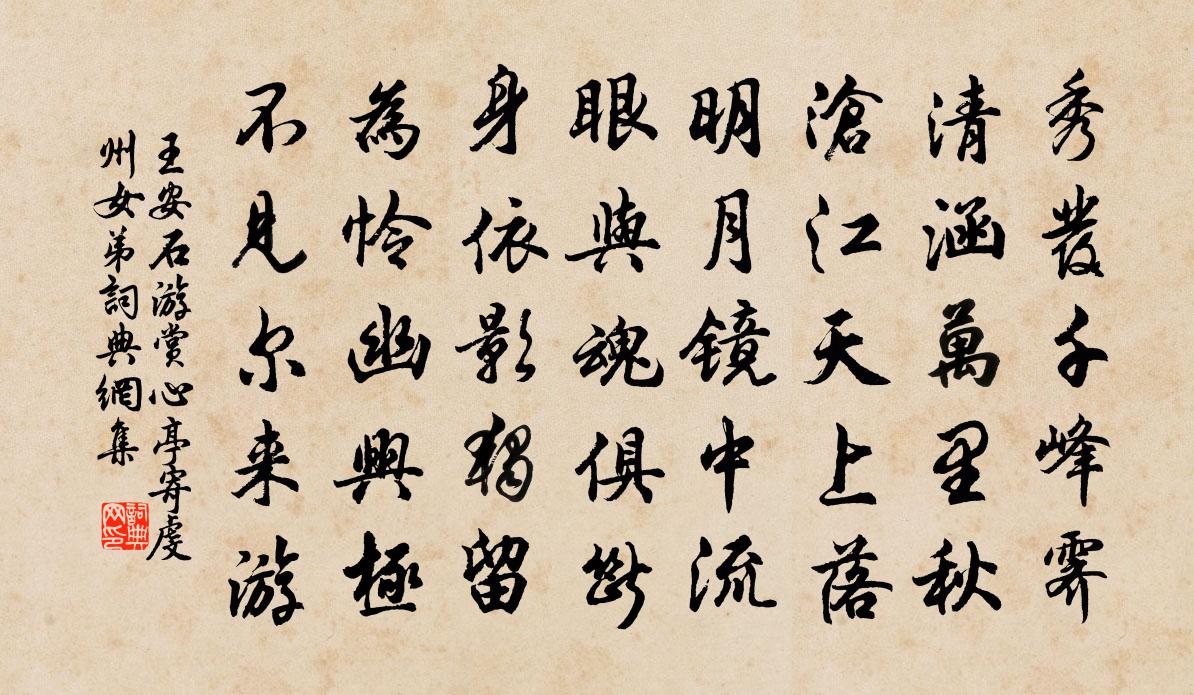 秀發千峰霽
清涵萬里秋
滄江天上落
明月鏡中流
眼與魂俱斷
身依影獨留
為怜幽興極
不見尔来游
王安石游賞心亭寄虔
州女弟詞典網集
詞典网印